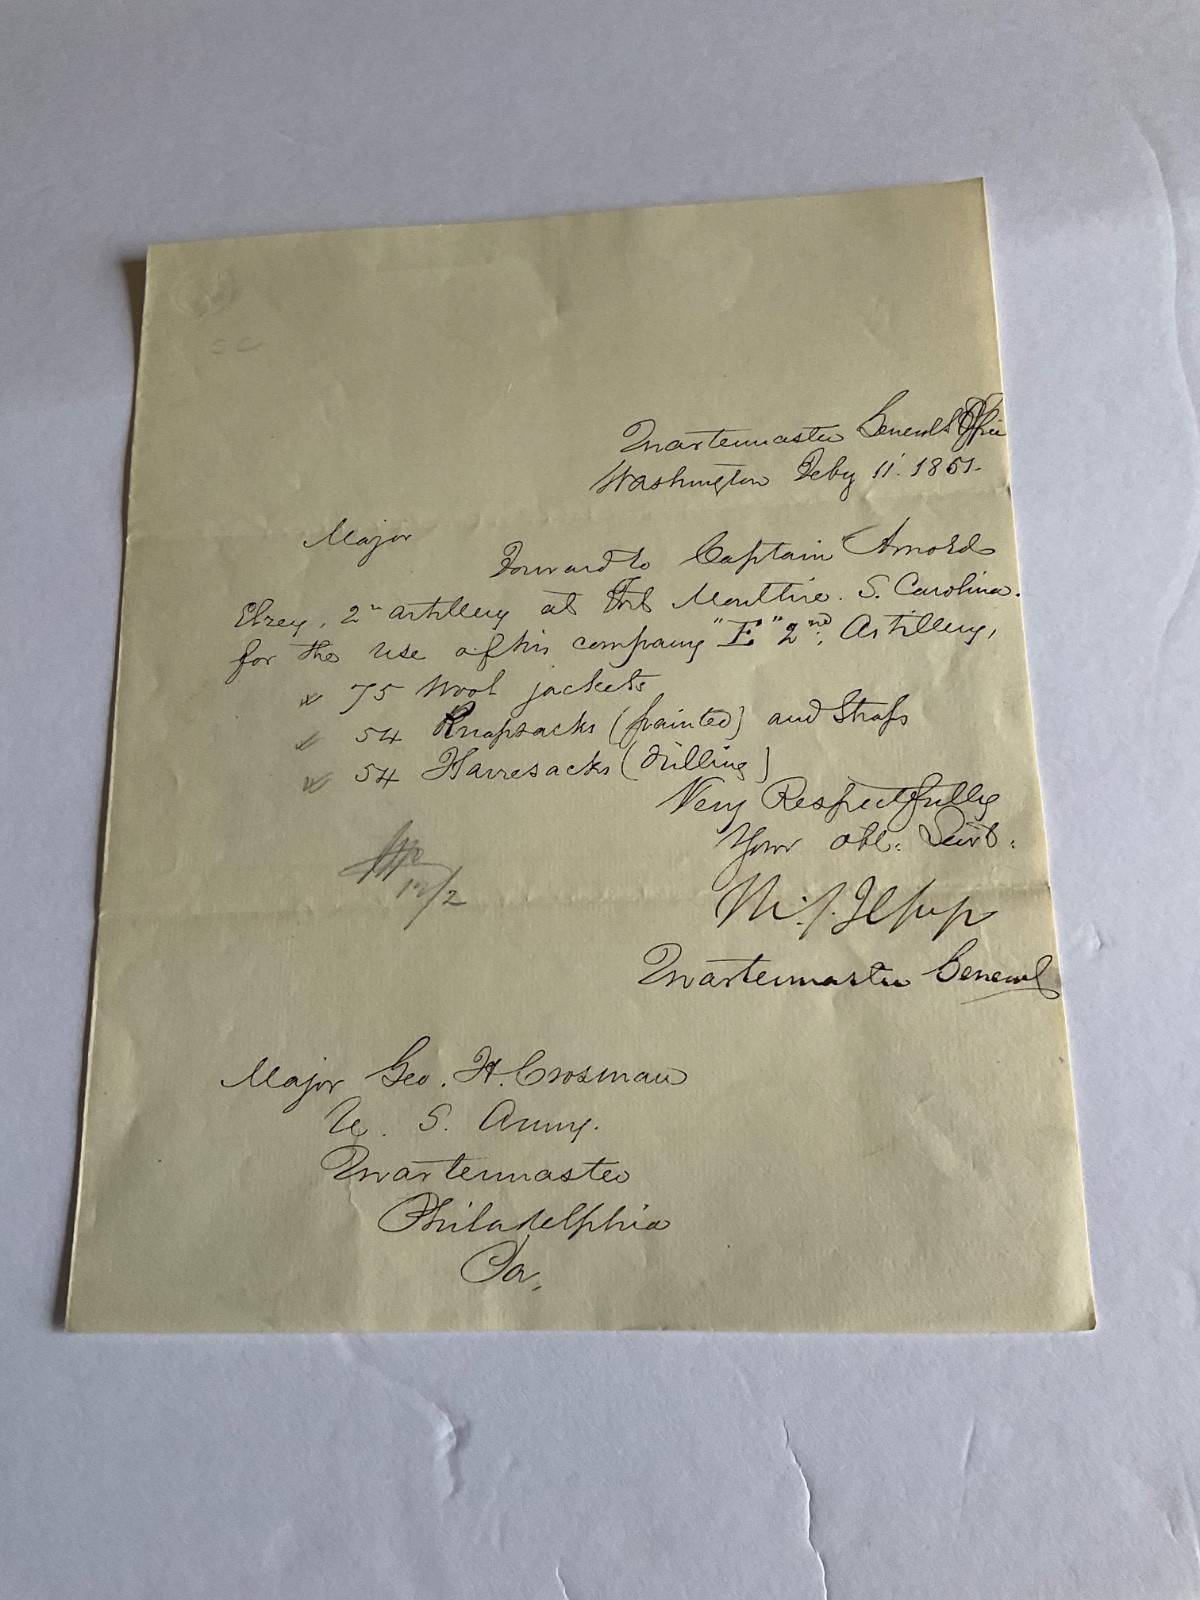 SC
Quartermaster Generals Office
Washington Feby 11. 1851.
Major
Forward to Captain Arnold
Elzey, 2n artillery at Fort Moultrie. S. Carolina.
for the use of his company "E" 2nd. Artillery,
75 Wool jackets
54 Knapsacks (painted) and Straps
54 Haversacks (drilling)
Very Respectfully
Your obt. Servt.
12/2
Quartermaster General
Major Geo. H. Crosman
U. S. Army.
Quartermaster
Philadelphia
Pa.